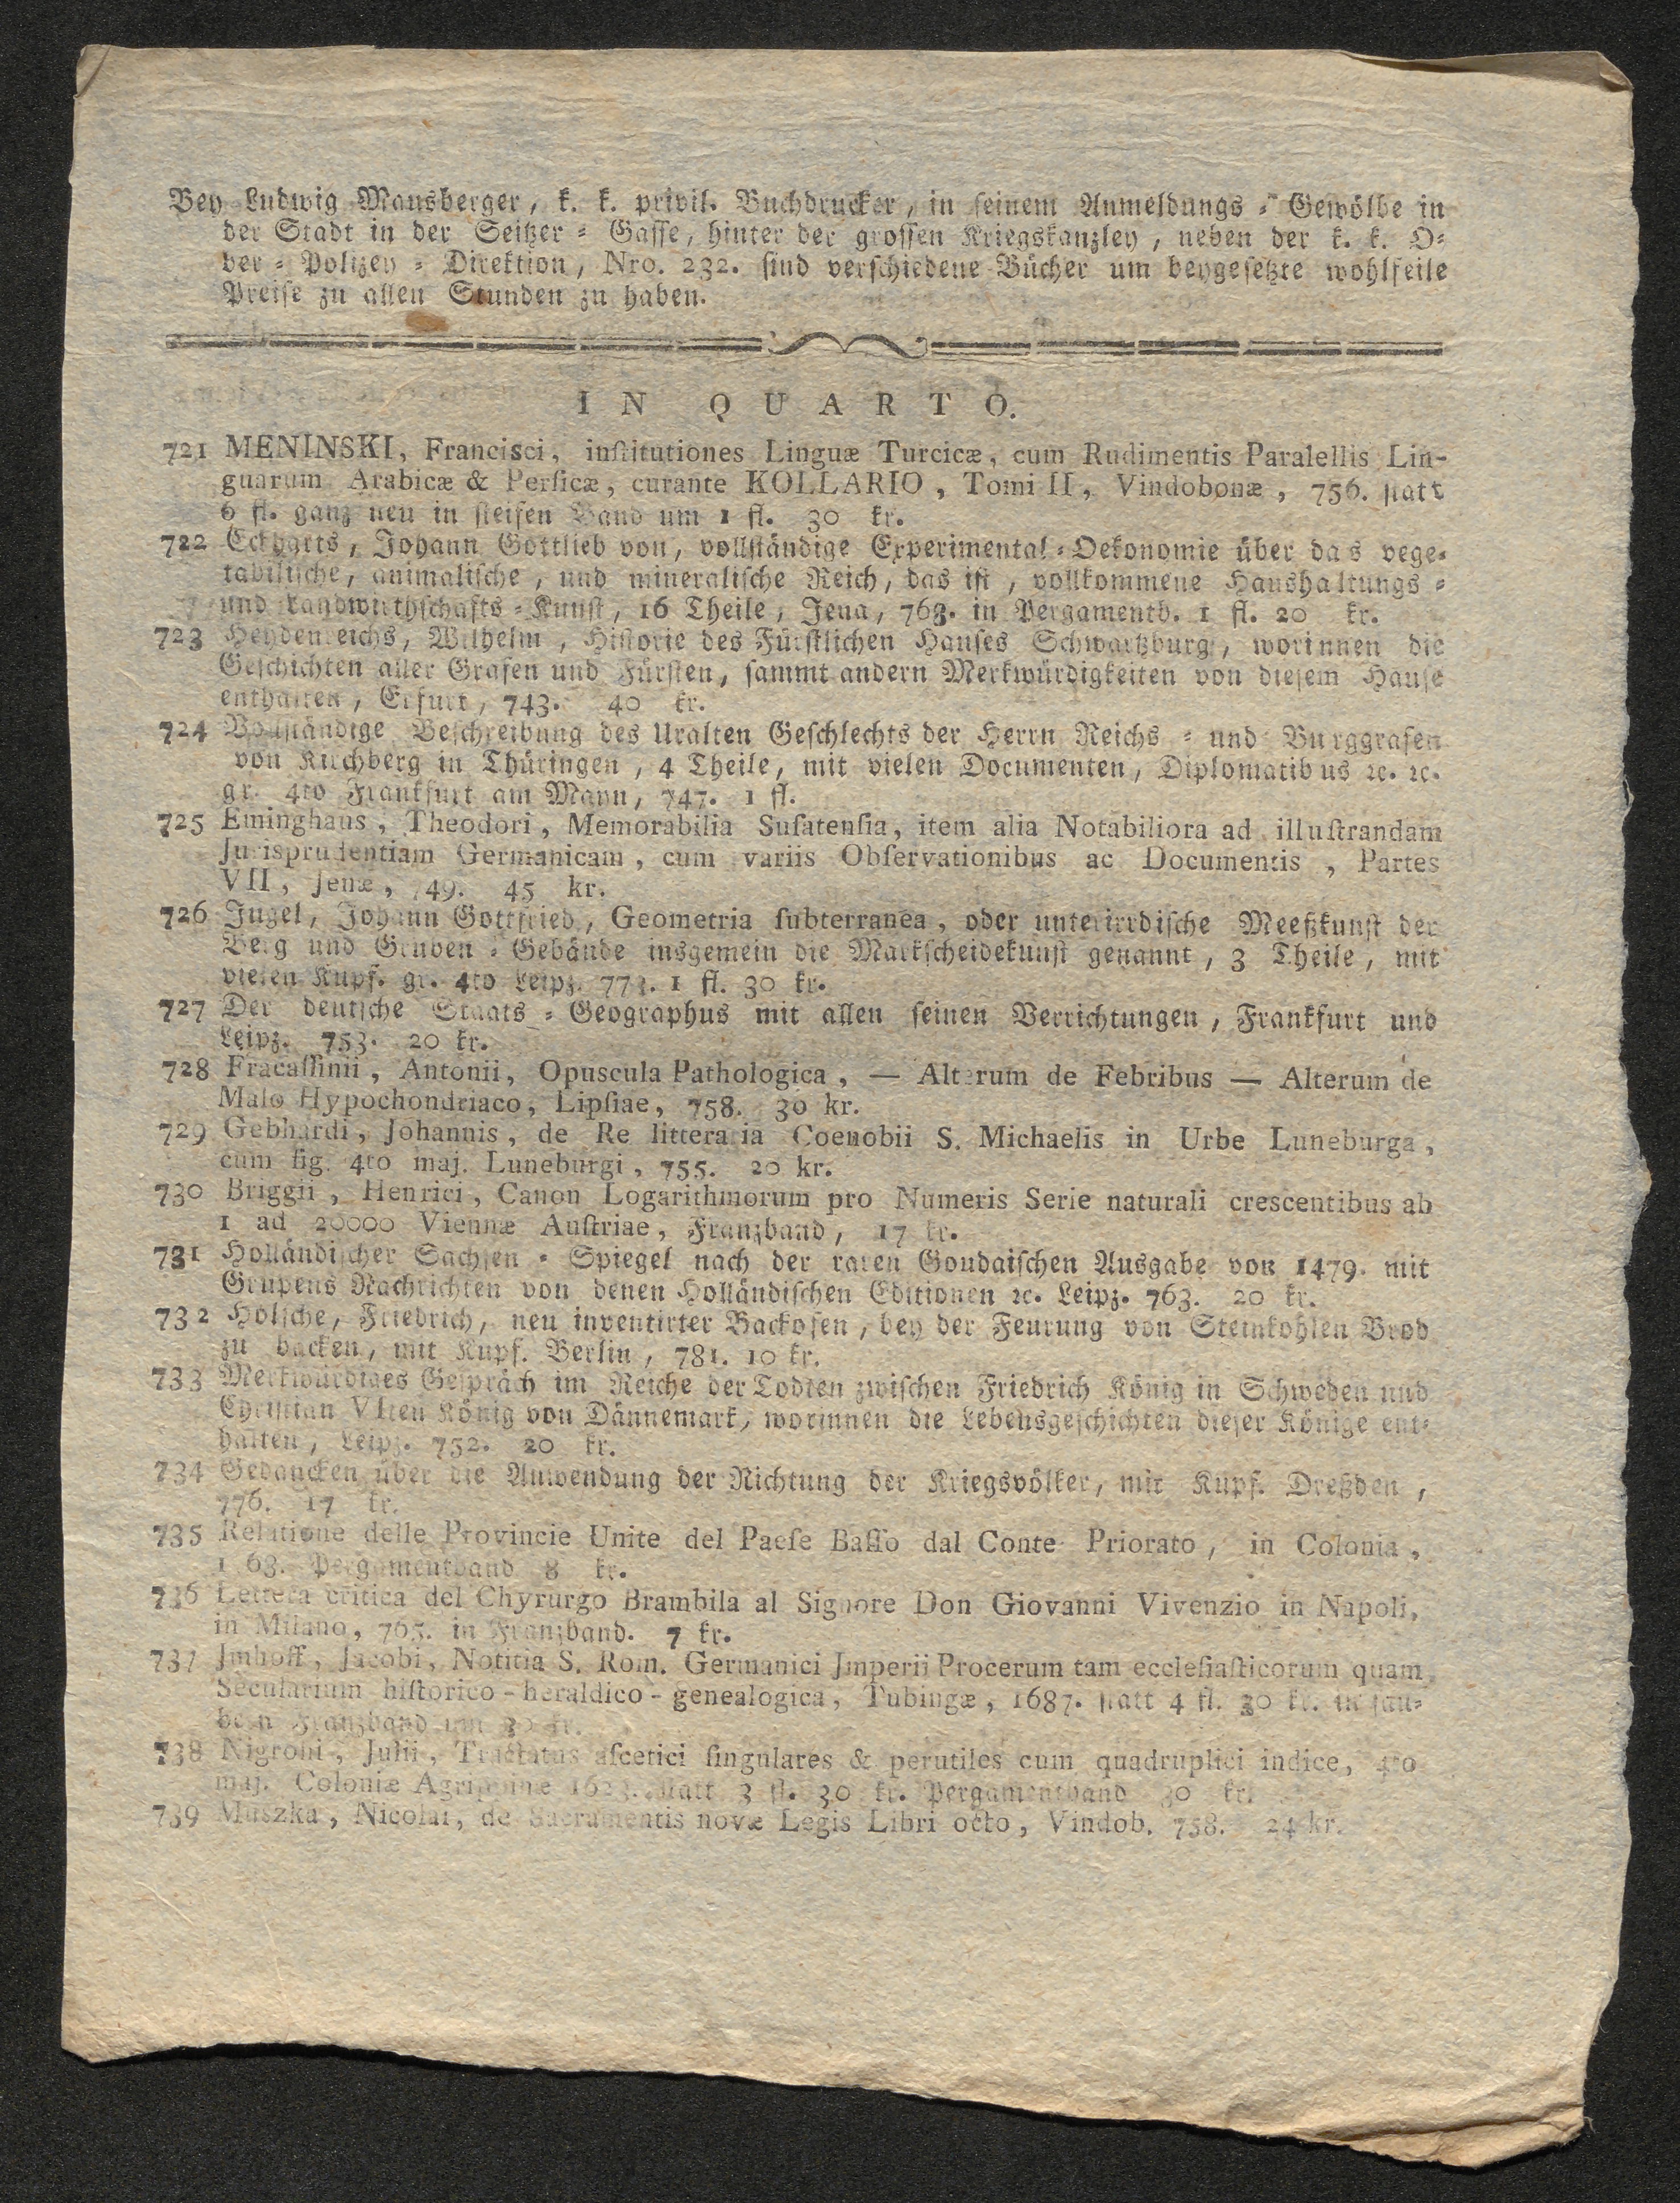 Bey Ludwig Mausberger, k. k. privil. Buchdrucker, in ſeinem Anmeldungs ⸗ Gewölbe in
der Stadt in der Seitzer ⸗ Gaſſe, hinter der groſſen Kriegskanzley, neben der k. k. O⸗
ber ⸗ Polizey ⸗ Direktion, Nro. 232. ſind verſchiedene Bücher um beygeſetzte wohlfeile
Preiſe zu allen Stunden zu haben.
IN QUARTO.
721 MENINSKI, Francisci, inſtitutiones Linguæ Turcicæ, cum Rudimentis Paralellis Lin-
guarum Arabicæ & Perſicæ, curante KOLLARIO, Tomi II, Vindobonæ, 756. ſtatt
6 fl. ganz neu in ſteifen Band um 1 fl. 30 kr.
722 Eckharts, Johann Gottlieb von, vollſtändige Experimental ⸗ Oekonomie über das vege⸗
tabiliſche, animaliſche, und mineraliſche Reich, das iſt, vollkommene Haushaltungs ⸗
und Landwirthſchafts ⸗ Kunſt, 16 Theile, Jena, 763. in Pergamentb. 1 fl. 20 kr.
723 Heydenreichs, Wilhelm, Hiſtorie des Fürſtlichen Hauſes Schwartzburg, worinnen die
Geſchichten aller Grafen und Fürſten, ſammt andern Merkwürdigkeiten von dieſem Hauſe
enthalten, Erfurt, 743. 40 kr.
724 Vollſtändige Beſchreibung des Uralten Geſchlechts der Herrn Reichs ⸗ und Burggrafen
von Kirchberg in Thüringen, 4 Theile, mit vielen Documenten, Diplomatibus ꝛc. ꝛc.
gr. 4to Frankfurt am Mayn, 747. 1 fl.
725 Eminghaus, Theodori, Memorabilia Suſatenſia, item alia Notabiliora ad illuſtrandam
Jurisprudentiam Germanicam, cum variis Obſervationibus ac Documentis, Partes
VII, Jenæ, 749. 45 kr.
726 Jugel, Johann Gottfried, Geometria ſubterranea, oder unterirrdiſche Meeßkunſt der
Berg und Gruben ⸗ Gebäude insgemein die Markſcheidekunſt genannt, 3 Theile, mit
vielen Kupf. gr. 4to Leipz. 773. 1 fl. 30 kr.
727 Der deutſche Staats ⸗ Geographus mit allen ſeinen Verrichtungen, Frankfurt und
Leipz. 753. 20 kr.
728 Fracaſſinii, Antonii, Opuscula Pathologica, — Alterum de Febribus — Alterum de
Malo Hypochondriaco, Lipſiae, 758. 30 kr.
729 Gebhardi, Johannis, de Re litteraria Coenobii S. Michaelis in Urbe Luneburga,
cum fig. 4to maj. Luneburgi, 755. 20 kr.
730 Briggii, Henrici, Canon Logarithmorum pro Numeris Serie naturali crescentibus ab
1 ad 20000 Viennæ Auſtriae, Franzband, 17 kr.
731 Holländiſcher Sachſen ⸗ Spiegel nach der raren Goudaiſchen Ausgabe von 1479. mit
Grupens Nachrichten von denen Holländiſchen Editionen ꝛc. Leipz. 763. 20 kr.
732 Holſche, Friedrich, neu inventirter Backofen, bey der Feurung von Steinkohlen Brod
zu backen, mit Kupf. Berlin, 781. 10 kr.
733 Merkwürdiges Geſpräch im Reiche der Todten zwiſchen Friedrich König in Schweden und
Chriſtian VIten König von Dännemark, worinnen die Lebensgeſchichten dieſer Könige ent⸗
halten, Leipz. 752. 20 kr.
734 Gedancken über die Anwendung der Richtung der Kriegsvölker, mit Kupf. Dreßden,
776. 17 kr.
735 Relatione delle Provincie Unite del Paeſe Baſſo dal Conte Priorato, in Colonia,
1 63. Pergamentband 8 kr.
736 Lettera critica del Chyrurgo Brambila al Signore Don Giovanni Vivenzio in Napoli,
in Milano, 765. in Franzband. 7 kr.
737 Jmhoff, Jacobi, Notitia S. Rom. Germanici Jmperii Procerum tam eccleſiaſticorum quam
Secularium hiſtorico - heraldico - genealogica, Tubingæ, 1687. ſtatt 4 fl. 30 kr. in ſau⸗
bern Franzband um 30 kr.
738 Nigroni, Julii, Tractatus aſcetici ſingulares & perutiles cum quadruplici indice, 4to
maj. Coloniæ Agrippinæ ſtatt 3 fl. 30 kr. Pergamentband 30 kr.
739 Muszka, Nicolai, de Sacramentis novæ Legis Libri octo, Vindob. 758. 24 kr.